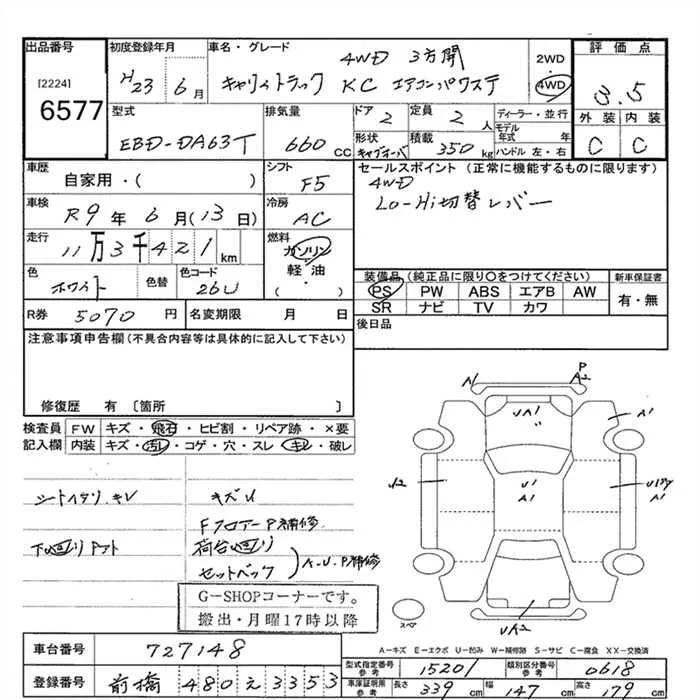 出品番号
[2224]
6577
初度登録年月
H23 6月
車名・グレード
4WD 3方開
キャリィトラック KC エアコンパワステ
2WD
・
4WD
評価点
3.5
外装 内装
C C
型式
EBD-DA63T
排気量
660 cc
ドア
2
定員
2 人
形状
キャブオーバ
積載
350 kg
ディーラー・並行
モデル年式 年
ハンドル 左・右
車歴
自家用・( )
シフト
F5
セールスポイント (正常に機能するものに限ります)
4WD
Lo-Hi切替レバー
車検
R9年 6月(13日)
冷房
AC
走行
11万3千421km
燃料
ガソリン
軽・油
・( )
色
ホワイト
色替
色コード
26U
装備品 (純正品に限り○をつけてください)
PS PW ABS エアB AW
SR ナビ TV カワ
新車保証書
有・無
R券 5070円
名変期限 月 日
後日品
注意事項申告欄 (不具合内容等は具体的に記入して下さい)
修復歴 有 〔箇所 〕
検査員記入欄
FW キズ・飛石・ヒビ割・リペア跡・×要
内装 キズ・汚れ・コゲ・穴・スレ・キレ・破レ
シートヘタリ.キレ
キズU
Fフロアー P補修
下廻り
荷台廻り
セットバック
A-U-P補修
G-SHOPコーナーです。
搬出・月曜17時以降
A1
P
A2
UA1
A1
A2
U1
A1
A1
UA2
スペア
A-キズ E-エクボ U-凹み W-補修跡 S-サビ C-腐食 XX-交換済
車台番号
727148
登録番号
前橋 480 え 3353
型式指定番号 参考
15201
類別区分番号 参考
0618
車庫証明用 参考
長さ 339 cm
幅 147 cm
高さ 179 cm